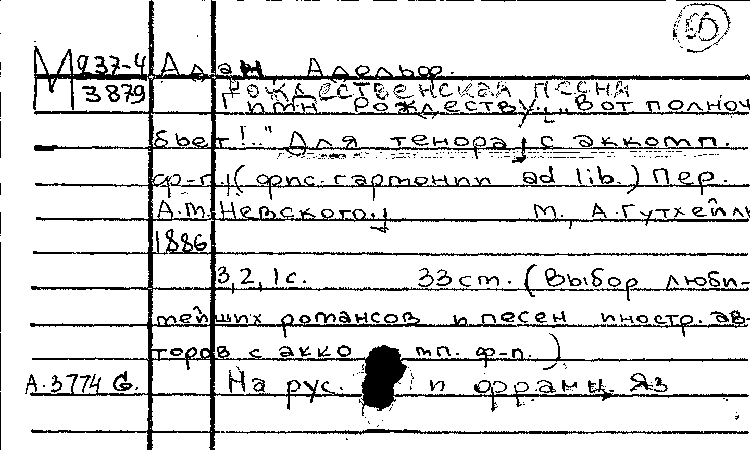 50
М 237-4 Адан Адольф.
3879 Рождественская песня
Гимн рождеству. „Вот полноч
бьет!.." Для тенора, с аккомп.
ф-п. (фис.гармонии ad lib.) Пер.
А.М.Невского. М., А.Гутхейль
1886
3,2,1с. 33см. (Выбор люби-
мейших романсов и песен иностр. ав-
торов с акко мп. ф-п.)
А.3774 G. На рус. и франц. яз